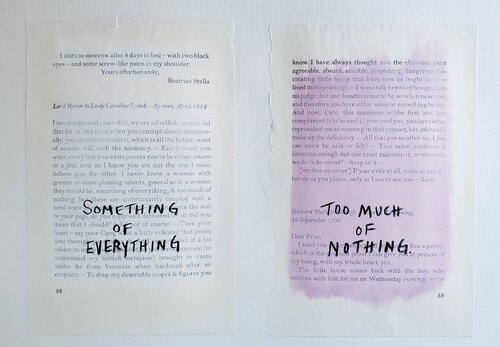 I start to-morrow after 8 days in bed — with two black
eyes — and some screw-like pains in my shoulder.
Yours affectionately,
Beatrice Stella
Lord Byron to Lady Caroline Lamb Sy even, April 1812
I never supposed you artful, we are all selfish, nature did
that for us, but even when you attempt deceit occasion-
ally, you cannot maintain it, which is all the better, want
of success will curb the tendency. — Every word you
utter, every line you write proves you to be either sincere
or a fool, now as I know you are not the one I must
believe you the other. I never knew a woman with
greater or more pleasing talents, general as in a woman
they should be, something of everything, & too much of
nothing, but these are unfortunately coupled with a
total want
SOMETHING
OF
EVERYTHING
to your page, do you suppose I delivered or did you
mean that I should? of course. — Then your
heart — my poor Caro, a little volcano that pours
lava through
colder, to
understand my foolish metaphor) brought in vases
tables &c from Vesuvius when hardened after an
eruption — To drop my detestable tropes & figures you
52
know I have always thought you the cleverest most
agreeable, absurd, amiable, perplexing, dangerous fas-
cinating little being that lives now or ought to have
lived 2000 years ago. — I wont talk to you of beauty, I am
no judge, but our beauties cease to be so when near you,
and therefore you have either some or something better.
And now, Caro, this nonsense is the first and last
compliment (if it be such) I ever paid you, you have often
reproached me as wanting in that respect, but others will
make up the deficiency. — All that you so often say, I feel,
can more be said or felt? — This same prudence is
tiresome enough, but one must maintain it, or what can
we do to be saved? — Keep to it —
[written on cover] If you write at all, write as usual —
but do as you please, only as I never see you — Basta.
TOO MUCH
OF
NOTHING.
Richard
Dear Prue,
I send you five a penny,
which is the proof I can give you at present of
my being, with my whole heart, yrs.
The little horse comes back with the boy, who
returns with him for me on Wednesday evening; in the
53